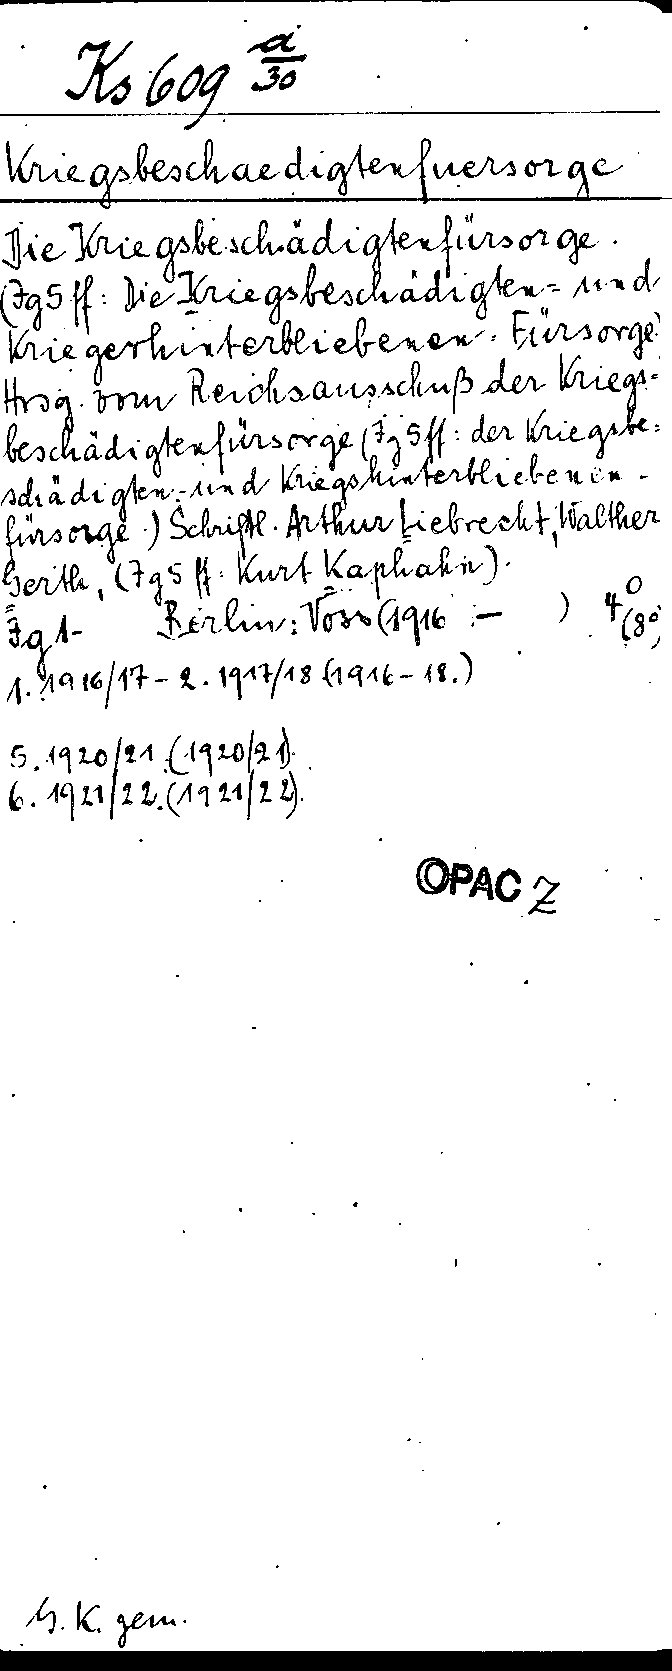 Ks 609 a/30
Kriegsbeschaedigtenfuersorge
Die Kriegsbeschädigtenfürsorge.
(Jg 5 ff: Die Kriegsbeschädigten= und
Kriegerhinterbliebenen-Fürsorge.)
Hrsg. vom Reichsausschuß der Kriegs=
beschädigtenfürsorge (Jg 5 ff: der Kriegsbe=
schädigten- und Kriegshinterbliebenen-
fürsorge.) Schriftl. Arthur Liebrecht, Walther
Gerth, (Jg 5 ff: Kurt Kaphahn).
Jg 1- Berlin: Voss (1916 - ) 4° (8°)
1. 1916/17 - 2. 1917/18 (1916-18.)
5. 1920/21. (1920/21).
6. 1921/22. (1921/22).
OPAC Z
G. K. gem.